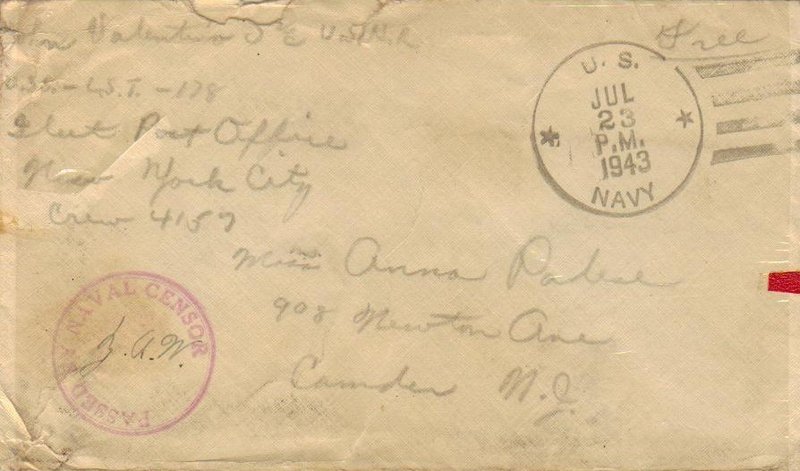 Valentine
Free
U.S.S. - L.S.T. - 178
Fleet Post Office
New York City
Crew 4157
U. S.
JUL
23
P.M.
1943
NAVY
Miss Anna
908 Newton Ave
Camden N.J.
PASSED BY NAVAL CENSOR
J.A.W.